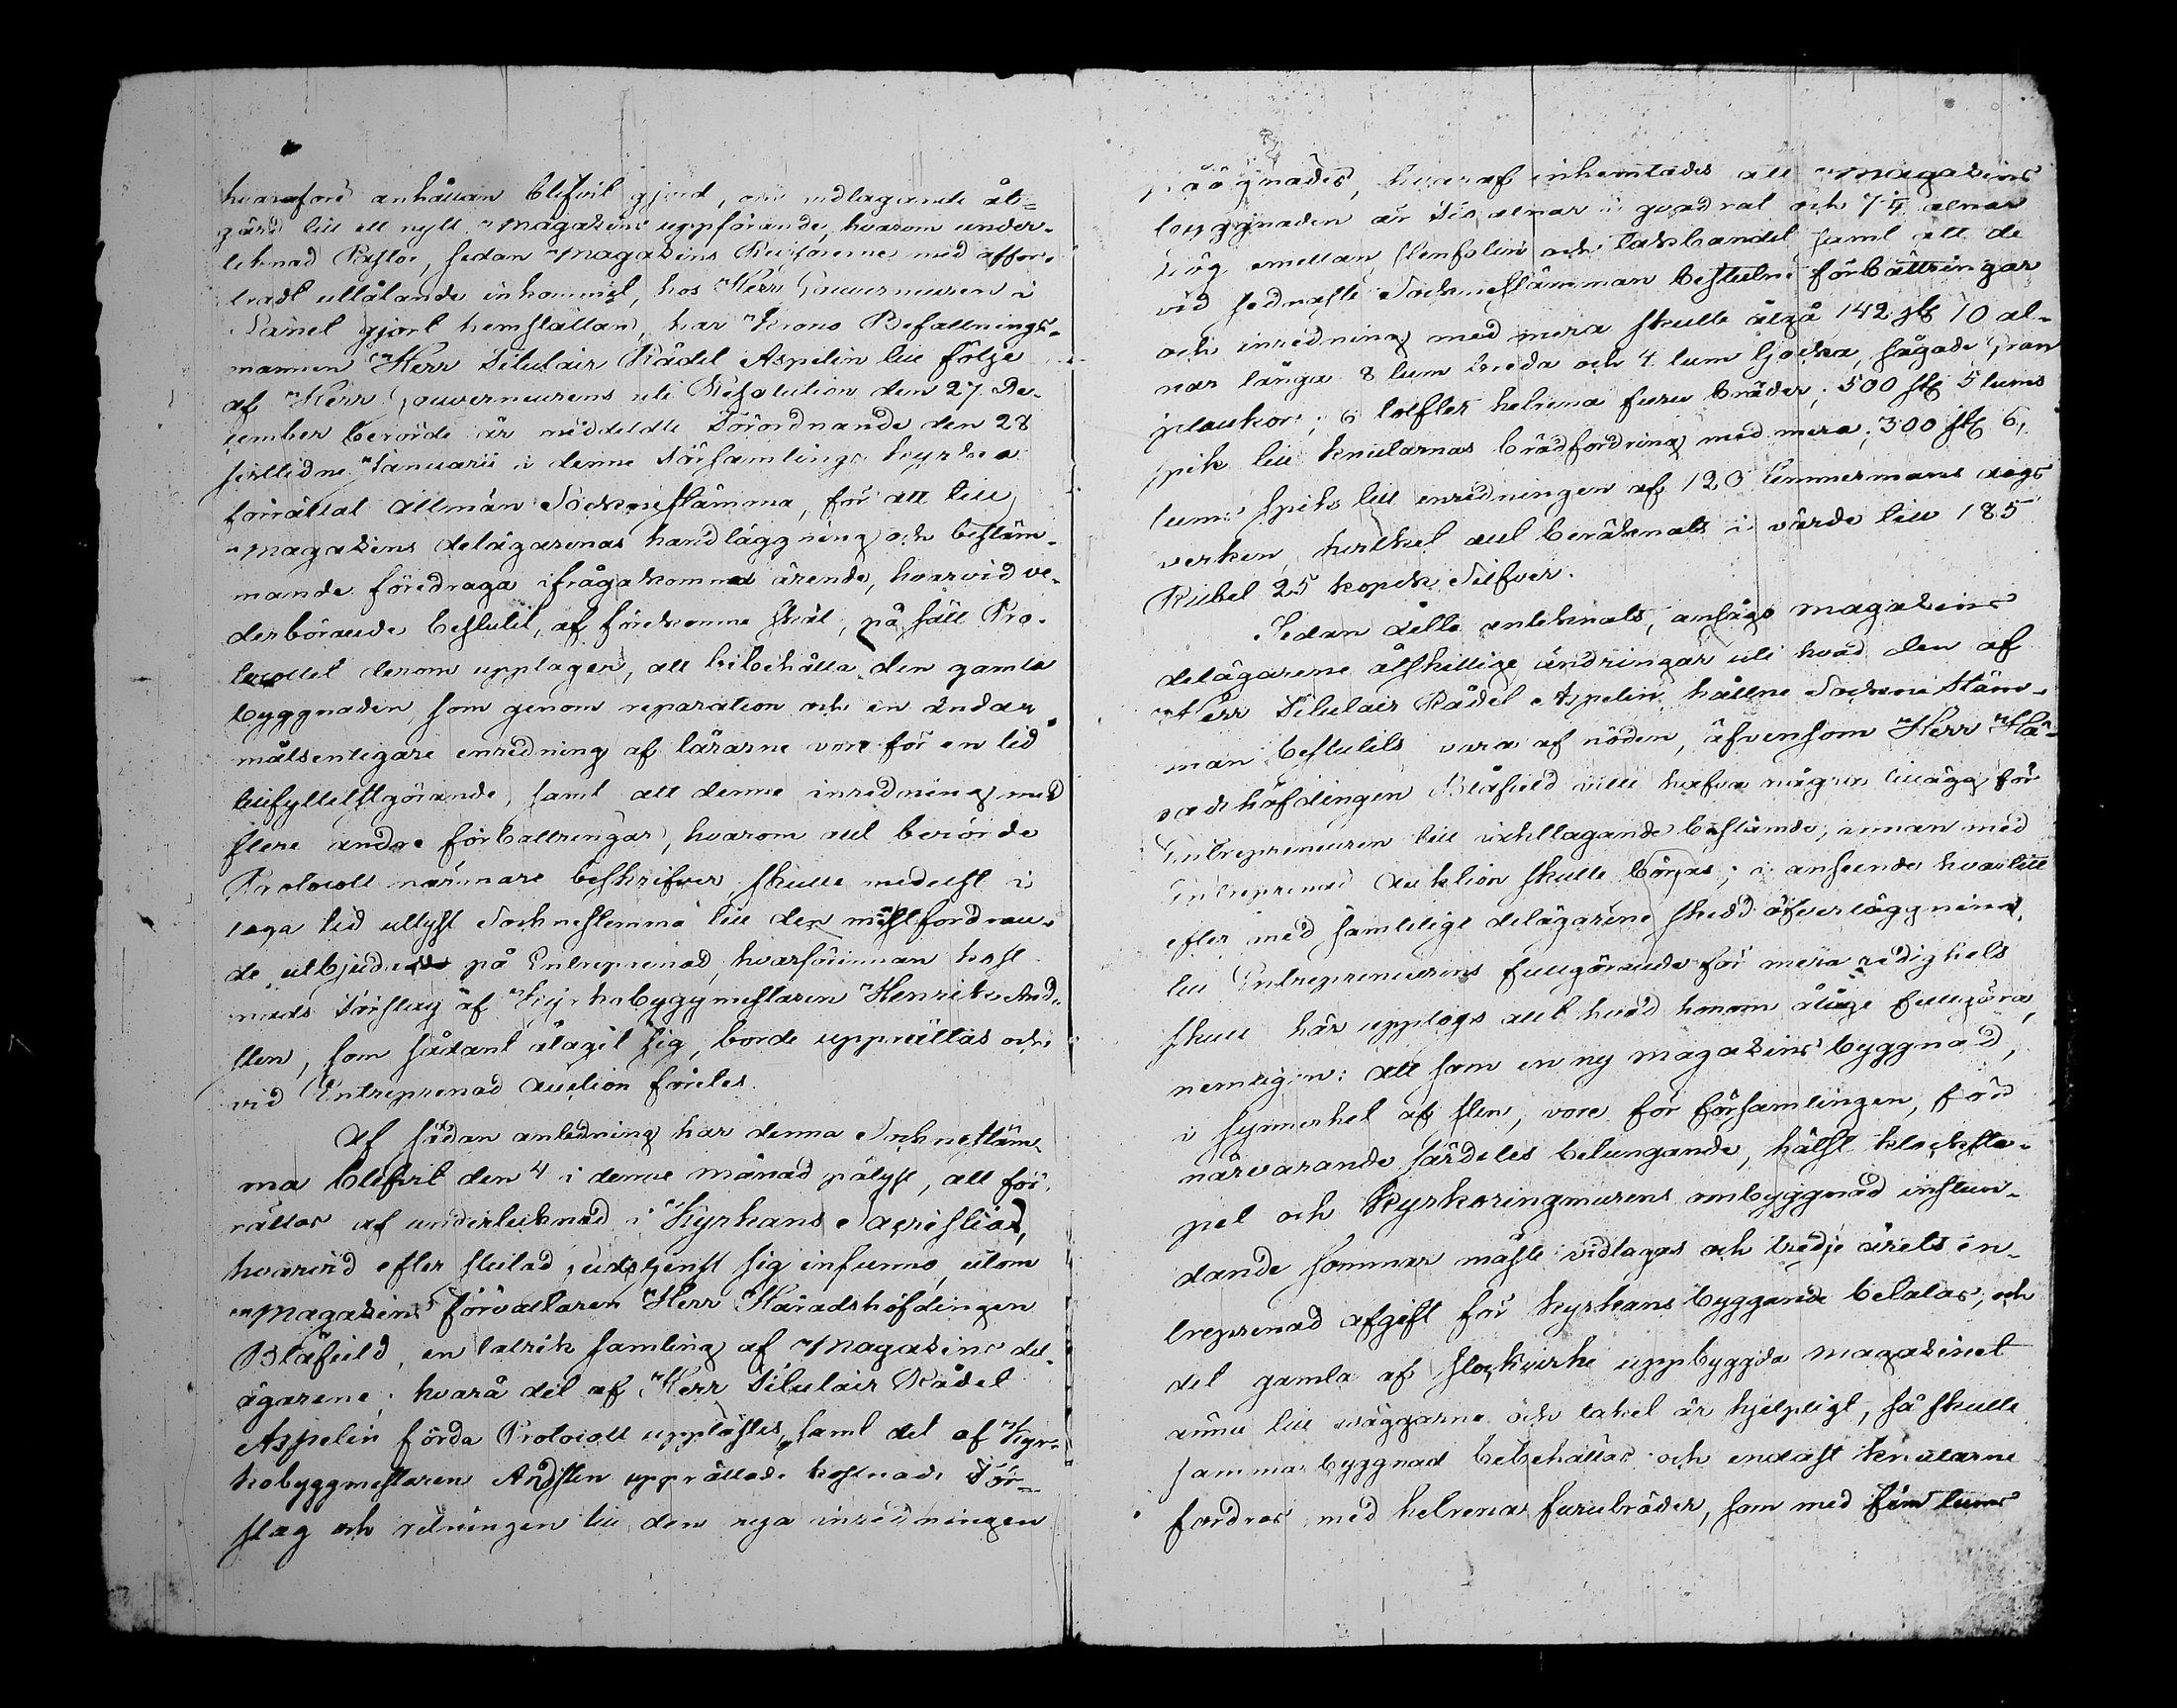 hvarefore anhållan blefvit gjord, om vidtagande åt=
gärd till ett nytt Magazins uppförande, hvarom under-
teknad Pastor, sedan Magazins Revisorerne med afford-
radt utlåtande inkommit, hos Herr Gouverneuren i
Länet gjort hemställan, har Krono Befallnings-
mannen Herr Titulair Rådet Aspelin till följe
af Herr Gouverneurens uti Resolution den 27 De-
cember berörde år meddeldte Förordnande den 28
sistlidne Januarii i denne Församlings kyrka
förrättat allmän Sockneståmma, för att till
Magazins delägarenas handläggning och bestäm-
mande föredraga ifrågakomne ärende, hvarvid ve-
derbörande beslutit, af förekomne skäl, på sätt Pro-
tocollet derom upptager, att bibehålla den gamla
byggnaden, som genom reparation och en ända-
målsenligare inredning af lårarne vore för en tid
tillfyllestgörande, samt att denne inredning med
flere andre förbättringar, hvarom ock berörde
Protocoll närmare beskrifver, skulle medelst i
laga tid utlyst Socknestemma till den mistfordran-
de utbjudas på Entreprenad, hvarförinnan kost
nads Förslag af Kyrkobyggmestaren Henrik And-
sten, som sådant åtagit sig, borde upprättas och
vid Entreprenad Auction företes.
Af sådan anledning har denna Sockneståm-
ma blifvit den 4 i denne månad pålyst, att för-
rättas af underteknad i Kyrkans Sacristia,
hvarvid efter slutad Gudstjenst sig infunno, utom
Magazins Förvaltaren Herr Häradshöfdingen
Blåfield, en talrik samling af Magazins del-
ägarene; hvarå det af Herr Titulair Rådet
Aspelin förda Protocoll upplästes, samt det af Kyr-
kobyggmestaren Andsten upprättade kostnads För-
slag och ritningen till den nya inredningen
påögnades, hvaraf inhemtades att Magazins
byggnaden är Tio alnar i quadrat och 7¼ alnar
hög emellan stenfoten och takbandet samt att de
vid sednaste Socknestämman beslutne förbättringar
och inredning med mera skulle åtgå 142 st 10 al-
nar långa 8 tum breda och 4 tum tjocka, sågade Gran
plankor; 6 tolfter helrena furu bräder; 500 st 5 tums
spik till knutarnas brädfordring med mera; 300 st 6,
tums spik till inredningen af 120 timmermans dags
verken, hvilket allt beräknats i värde till 185
Rubel 25 kopek Silfver.
Sedan detta anteknats, ansågo magazins
delägarene åtskillige ändringar uti hvad den af
Herr Titulair Rådet Aspelin hållne Sockne stäm-
man beslutits vara af nöden, äfvensom Herr Hä-
radshöfdingen Blåfield ville hafva några tillägg för
Entrepreneuren till iakttagande bestämde, innan med
Entreprenad Auktion skulle börjas; i anseende hvartill
efter med samtelige delägarene skedd öfverläggning,
till Entrepreneurens fullgörande för mera redighets
skull här upptogs allt hvad honom åläge fullgöra,
nemligen: att som en ny magazins byggnad,
i synnerhet af sten, vore för församlingen, för
närvarande särdeles betungande, hälst klocksta-
pel och Kyrkoringmurens ombyggnad instun-
dande sommar måste vidtagas och tredje årets en-
treprenad afgift för kyrkans byggande betalas, och
det gamla af stockvirke uppbyggda magazinet
ännu till väggarne och taket är hjelpligt, så skulle
samma byggnad bibehållas och endast knutarne
fordras med helrena furubräder, som med fem tums